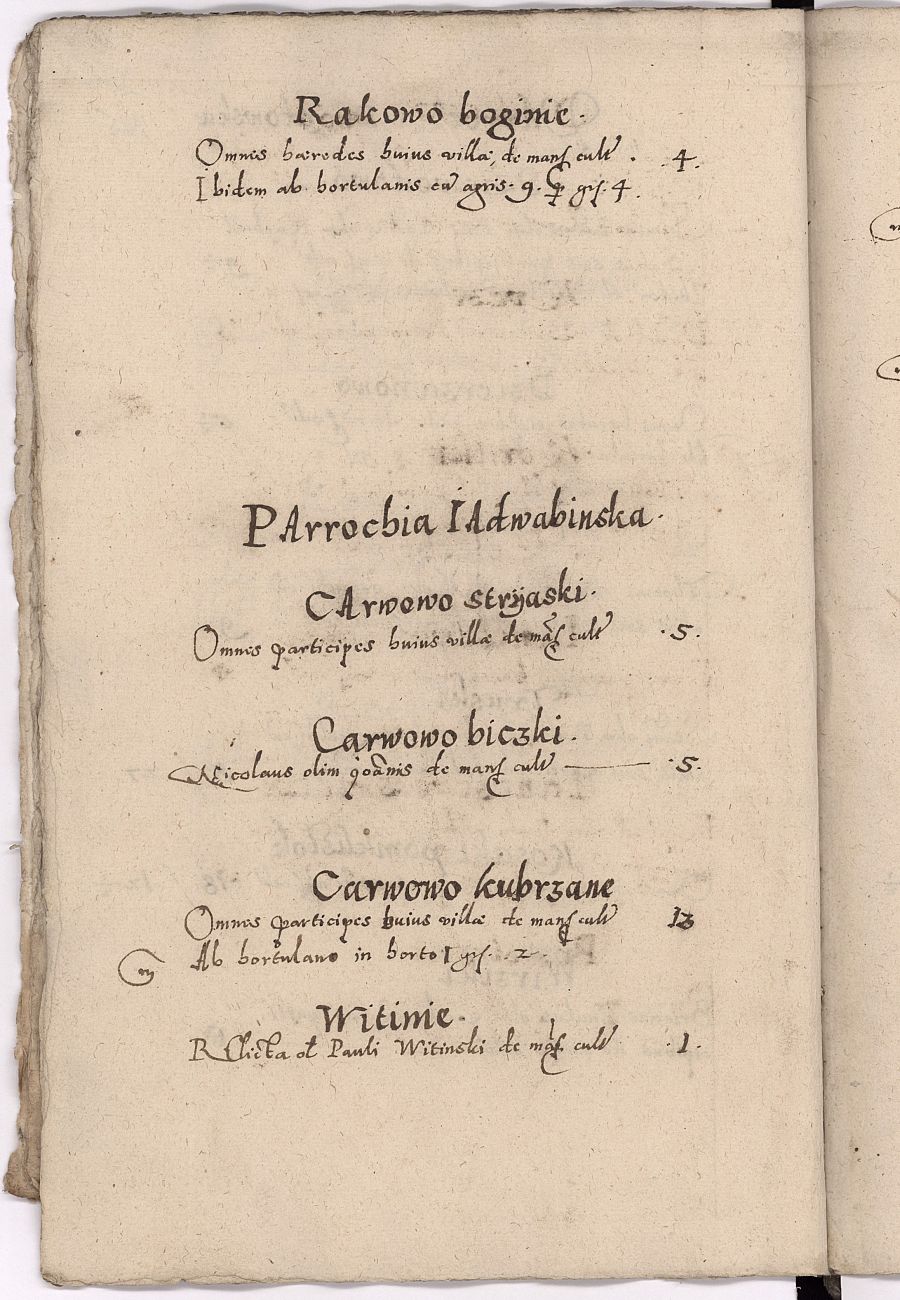 Rakowo boginie.
Omnes hæredes huius villæ, de mans cult . 4.
Ibidem ab hortulanis cu agris. 9. p gr. 4.
PArrochia IAdwabinska.
CArwowo stryaski.
Omnes participes huius villæ de mas cult .5.
Carwowo biczki.
Nicolaus olim Joānis de mans cult — .5.
Carwowo kubrzane
Omnes participes huius villæ de mans cult 13
Ab hortulano in horto 1 gr. .2.
Witinie.
Relicta ol Pauli Witinski de mas cult .1.